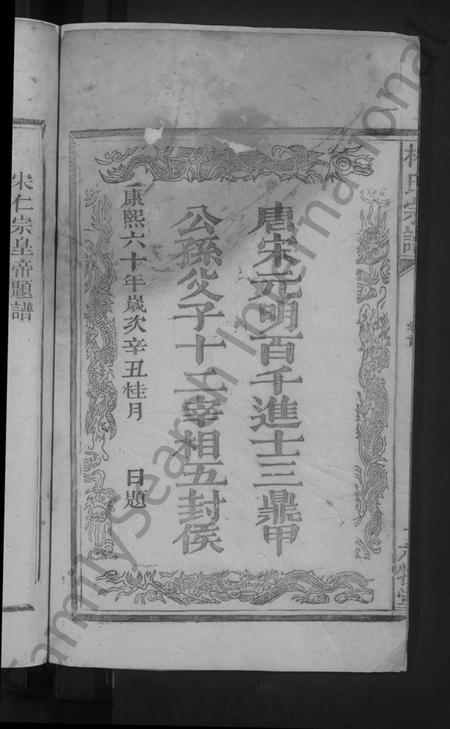 林氏宗譜
唐宋元明百千進士三鼎甲
公孫父子十二宰相五封侯
康熙六十年歲次辛丑桂月 日題
宋仁宗皇帝題譜
FamilySearch International